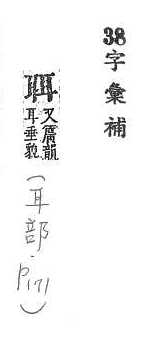 38字彙補
又廣韻
耳垂貌
(耳部.P171)